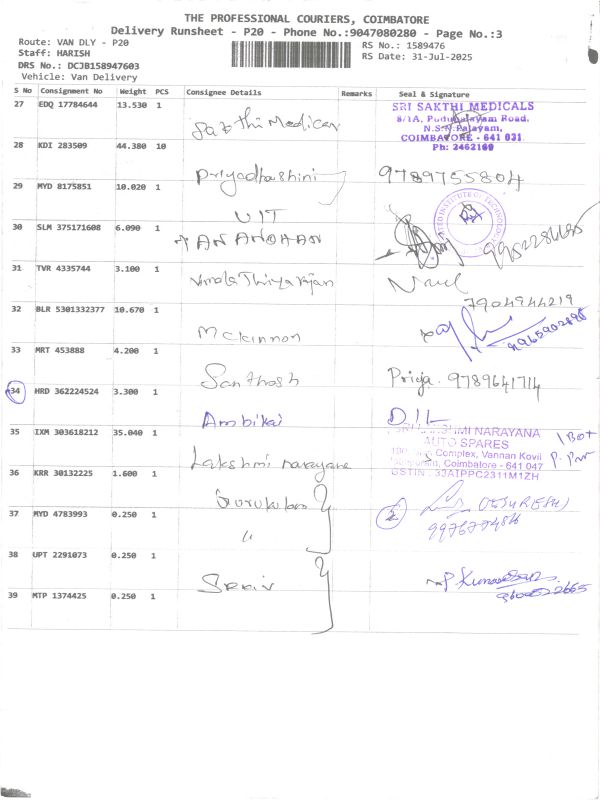 THE PROFESSIONAL COURIERS, COIMBATORE
Delivery Runsheet - P20 - Phone No.:9047080280 - Page No.:3
Route: VAN DLY - P20
Staff: HARISH
DRS No.: DCJB158947603
Vehicle: Van Delivery
RS No.: 1589476
RS Date: 31-Jul-2025
S No Consignment No Weight PCS Consignee Details Remarks Seal & Signature
27 EDQ 17784644 13.530 1
SRI SAKTHI MEDICALS
8/1A, Pudupalayam Road,
N.S.N.Palayam,
COIMBATORE - 641 031.
Ph: 2462169
28 KDI 283509 44.380 10
Priyadharshini 9789755804
29 MYD 8175851 10.020 1
UIT
30 SLM 375171608 6.090 1
31 TVR 4335744 3.100 1
7904944219
32 BLR 5301332377 10.670 1
Mckinnon
33 MRT 453888 4.200 1
Santhosh Priya 9789641714
34 HRD 362224524 3.300 1
Ambikai
35 IXM 303618212 35.040 1
LAKSHMI NARAYANA
AUTO SPARES
Complex, Vannan Kovil
Coimbatore - 641 047
GSTIN : 33AIPPC2311M1ZH
Lakshmi narayana
36 KRR 30132225 1.600 1
37 MYD 4783993 0.250 1
"
38 UPT 2291073 0.250 1
39 MTP 1374425 0.250 1